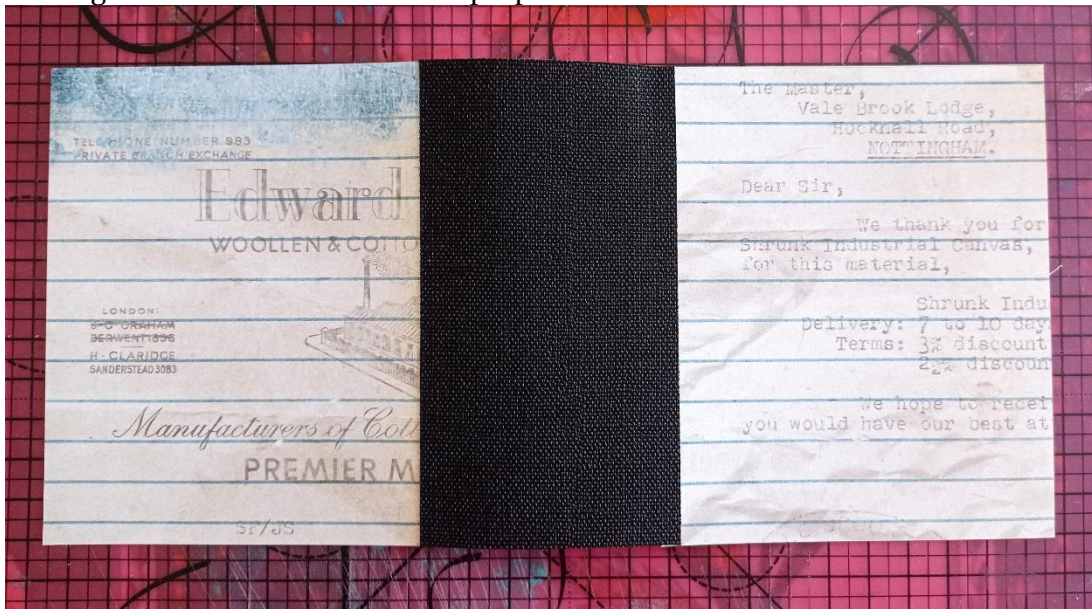 TELEPHONE NUMBER 993
PRIVATE BRANCH EXCHANGE
Edward
WOOLLEN & COTTO
LONDON:
S·O·GRAHAM
DERWENT 1396
H·CLARIDGE
SANDERSTEAD 3083
Manufacturers of Cott
PREMIER M
The Master,
Vale Brook Lodge,
Hucknall Road,
NOTTINGHAM.
Dear Sir,
We thank you for
Shrunk Industrial Canvas,
for this material,
Shrunk Indu
Delivery: 7 to 10 day
Terms: 3% discount
2½% discoun
We hope to recei
you would have our best at